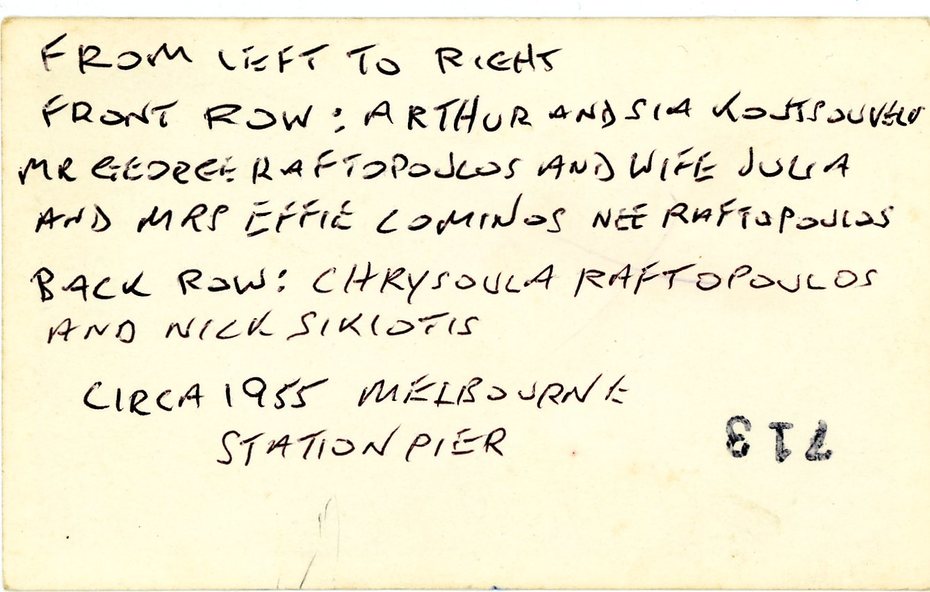 FROM LEFT TO RIGHT
FRONT ROW: ARTHUR AND SIA
MR GEORGE RAFTOPOULOS AND WIFE JULIA
AND MRS EFFIE COMINOS NEE RAFTOPOULOS
BACK ROW: CHRYSOULA RAFTOPOULOS
AND NICK SIKIOTIS
CIRCA 1955 MELBOURNE
STATION PIER
713